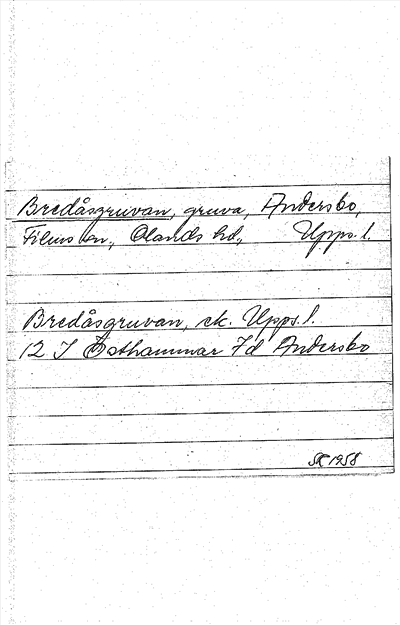 Bredåsgruvan, gruva, Andersbo,
Films sn, Olands hd., Upps. l.
Bredåsgruvan, ek. Upps. l.
12 I Östhammar 7d Andersbo
SK 1958